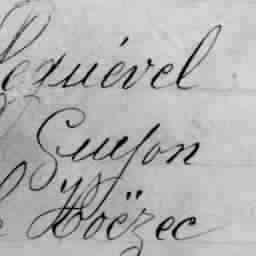 Lequével
Guyon
Le Hoëzec